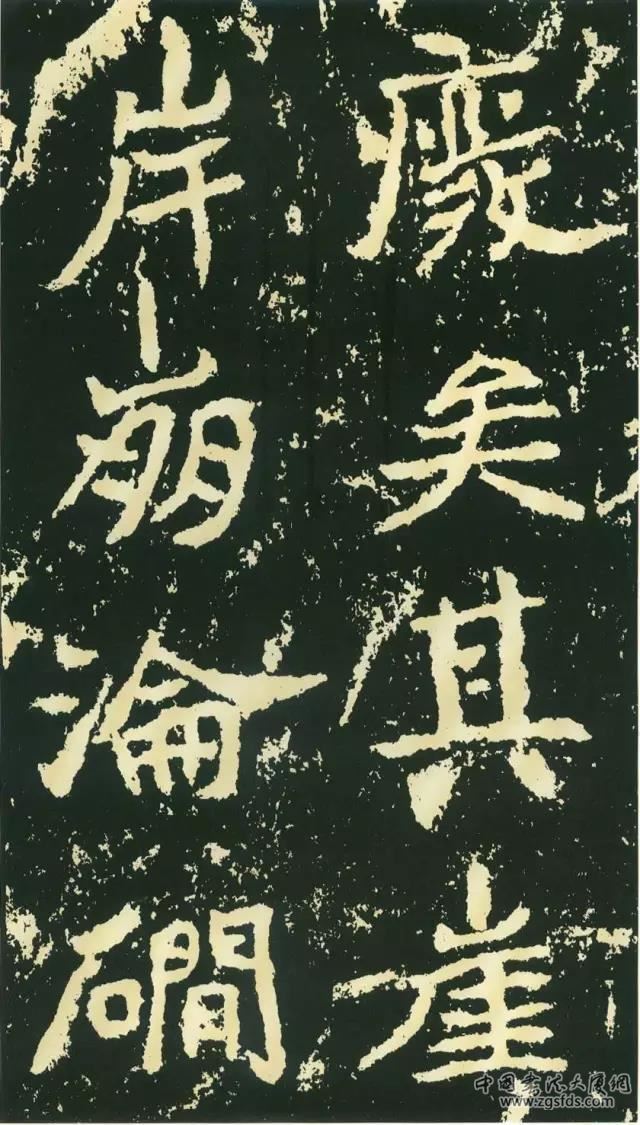 廢矣其崖
岸崩淪磵
中国书法大厦网
www.zgsfds.com